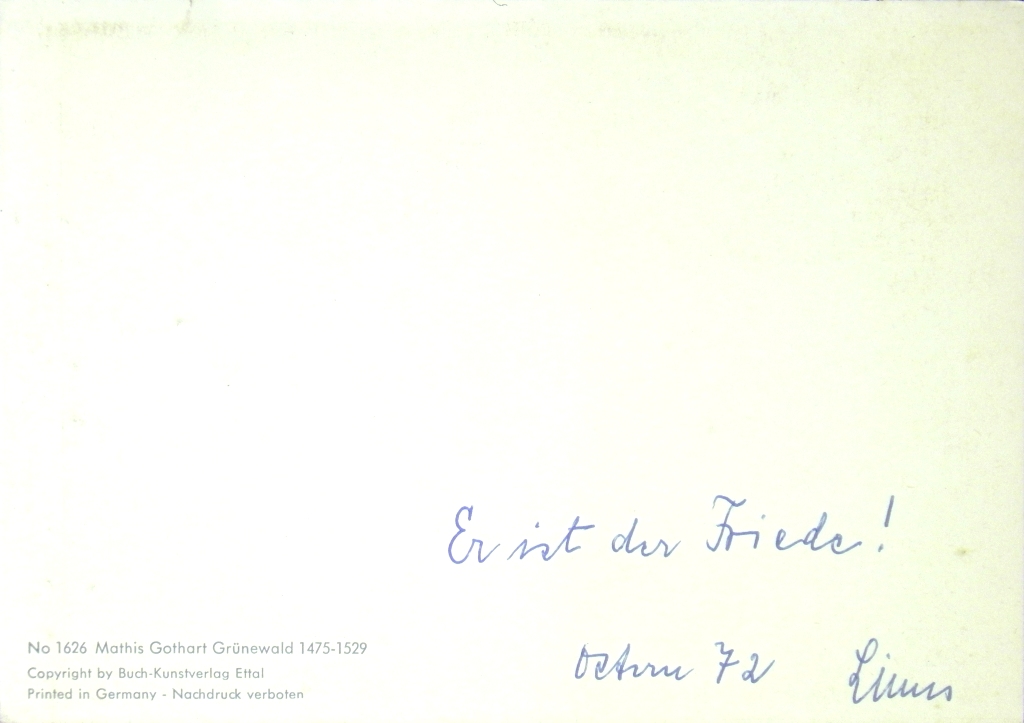 Er ist der Friede!
Ostern 72 Linus
No 1626 Mathis Gothart Grünewald 1475-1529
Copyright by Buch-Kunstverlag Ettal
Printed in Germany - Nachdruck verboten